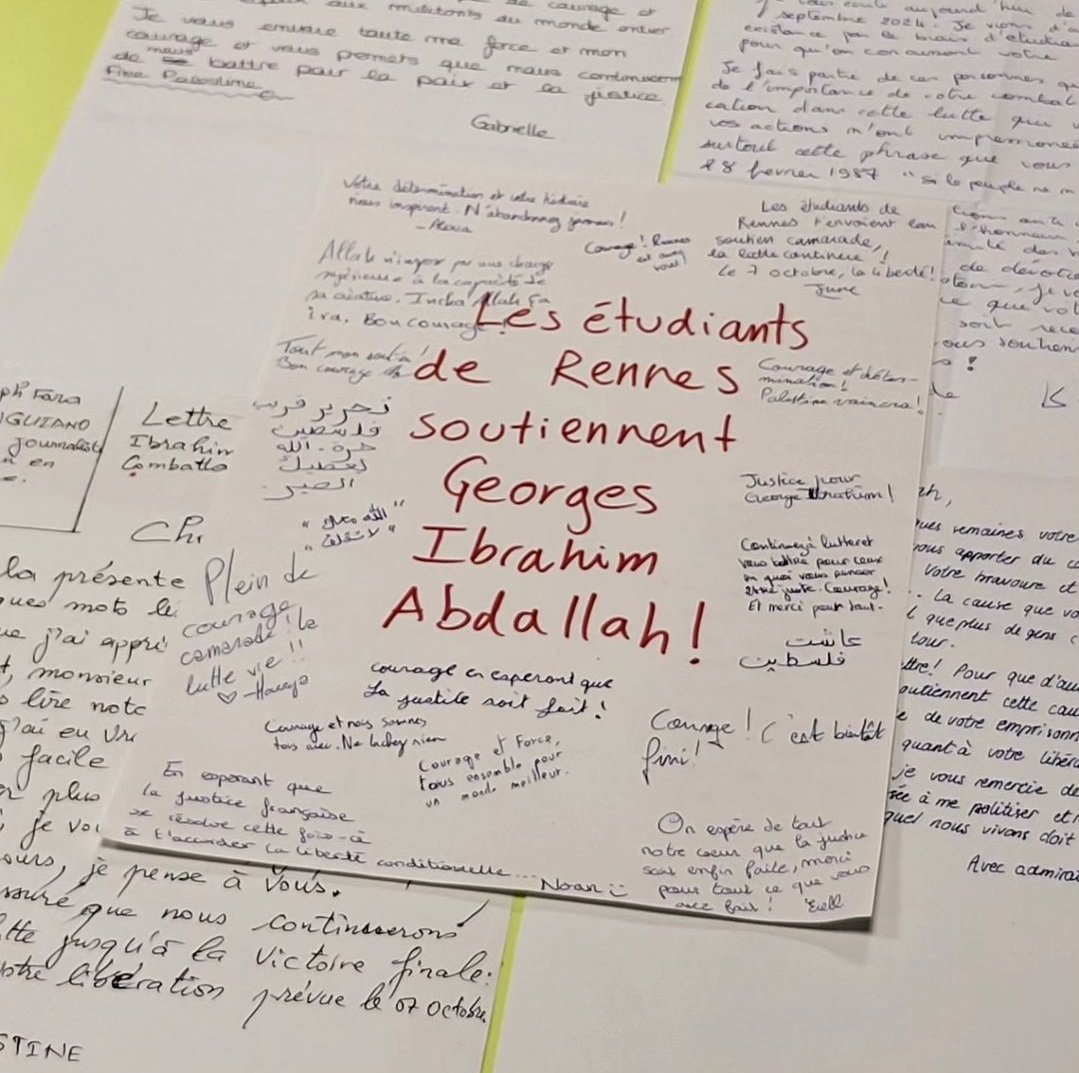 de courage et
aux militants du monde entier
Je vous envoie toute ma force et mon
courage et vous promets que nous continuerons
de nous battre pour la paix et la justice
Free Palestine
Gabrielle
aujourd'hui
septembre 2024. Je viens
existence par le biais d'étudian
pour qu'on
votre
Je fais partie de ces personnes qu
de l'importance de votre combat
cation dans cette lutte que
vos actions m'ont impressionné
surtout cette phrase que vous
28 février 1987 "Si le peuple ne m
Votre détermination et votre histoire
nous inspirent. N'abandonnez jamais !
Courage ! Rennes
est avec
vous !
Les étudiants de
Rennes t'envoient leur
soutien camarade,
la lutte continue !
Le 7 octobre, la liberté !
June
Allah n'impose pas une charge
supérieure à la capacité de
sa création. Incha'Allah ça
ira. Bon courage !
Tout mon soutien !
Bon courage
Les étudiants
de Rennes
soutiennent
Georges
Ibrahim
Abdallah !
Courage et déter-
mination !
Palestine vaincra !
تحرير قريب
فلسطين
حرة. الله
يعطيك
الصبر
"الله معك
لا تقلق"
Justice pour
George Ibrahim !
Continuez à lutter et
vous battre pour ceux
en quoi vous pensez
être juste. Courage !
Et merci pour tout.
عاشت
فلسطين
Plein de
courage
camarade ! la
lutte vie !!
courage en esperant que
la justice soit fait !
Courage et nous sommes
tous avec. Ne lachez rien
Courage et Force,
tous ensemble pour
un monde meilleur.
Courage ! C'est bientôt
fini !
En esperant que
la justice française
se résolve cette fois-ci
à t'accorder la liberté conditionelle...
Noan
On espère de tout
notre coeur que la justice
soit enfin faite, merci
pour tout ce que vous
avez fait !
ph Fara
GUIANO
Journalist
en
Lettre
Ibrahim
Combatta
Chr
la présente
ques mots
j'ai appri
, monsieur
lire
j'ai eu
facile
plus
je vou
ours, je pense à vous.
suré que nous continuerons
tte jusqu'à la victoire finale.
otre libération prévue le 07 octobre
STINE
l'honneur
de dévotio
ce que vo
soit
ous souten
ues semaines votre
ous apporter du
votre bravoure et
.. La cause que vo
que plus de gens
tour.
ttre ! Pour que d'au
outiennent cette cau
de votre emprison
quant à votre libéra
je vous remercie de
sée à me politiser et
quel nous vivons doit
Avec admirat